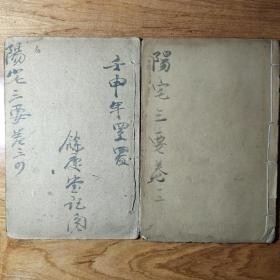 壬申年
餘慶堂記
陽宅三要卷三四
陽宅三要卷